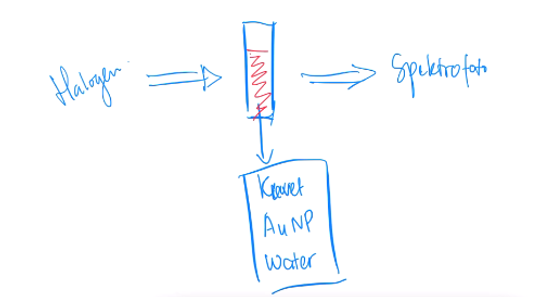 Halogen
Spektrofoto
Kuvet
AuNP
Water